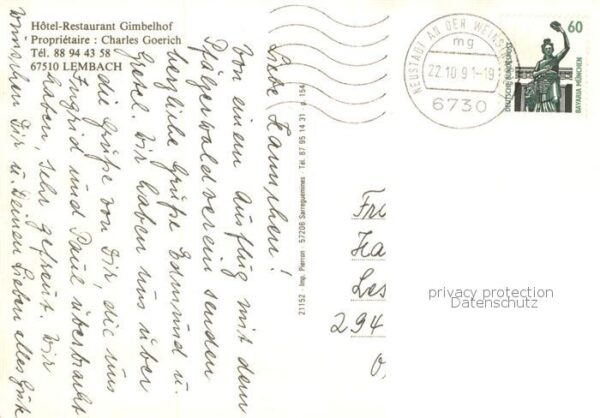 Hôtel-Restaurant Gimbelhof
Propriétaire : Charles Goerich
Tél. 88 94 43 58
67510 LEMBACH
Liebe Hannchen!
Von einem Ausflug mit dem
Pfälzerwaldverein senden
herzliche Grüße Edmund u.
Gisel. Wir haben uns über
die Grüße von Dir, die uns
Ingrid und Paul überbracht
haben, sehr gefreut. Wir
wünschen Dir u. Deinen Lieben alles Gute
21152 - Imp. Pierron - 57206 Sarreguemines - Tél. 87 95 14 31 - p. 154
NEUSTADT AN DER WEINSTR
mg
22.10.91-19
6730
60
DEUTSCHE BUNDESPOST
BAVARIA MÜNCHEN
Fr
Ha
Les
294
privacy protection
Datenschutz